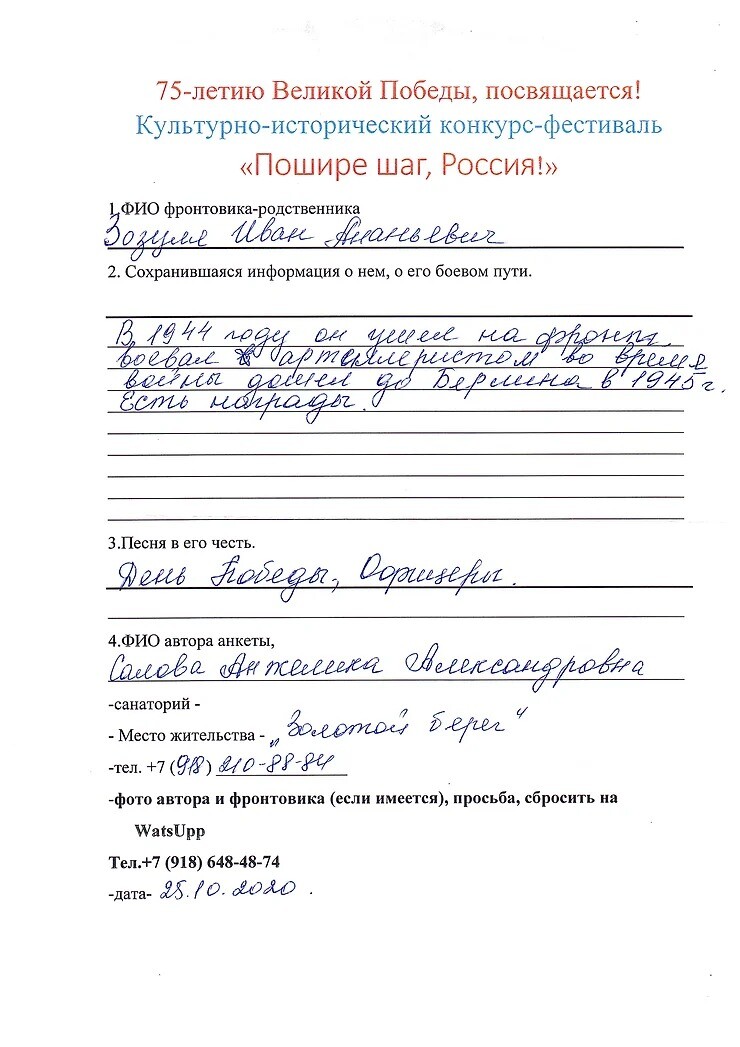 75-летию Великой Победы, посвящается!
Культурно-исторический конкурс-фестиваль
«Пошире шаг, Россия!»
1.ФИО фронтовика-родственника
Зозуля Иван Ананьевич
2. Сохранившаяся информация о нем, о его боевом пути.
В 1944 году он ушел на фронт.
воевал артиллеристом во время
войны дошел до Берлина в 1945г.
Есть награды.
3.Песня в его честь.
День Победы, Офицеры.
4.ФИО автора анкеты,
Салова Анжелика Александровна
-санаторий -
- Место жительства - „Золотой берег"
-тел. +7 (918) 210-88-84
-фото автора и фронтовика (если имеется), просьба, сбросить на
WatsUpp
Тел.+7 (918) 648-48-74
-дата- 25.10.2020.